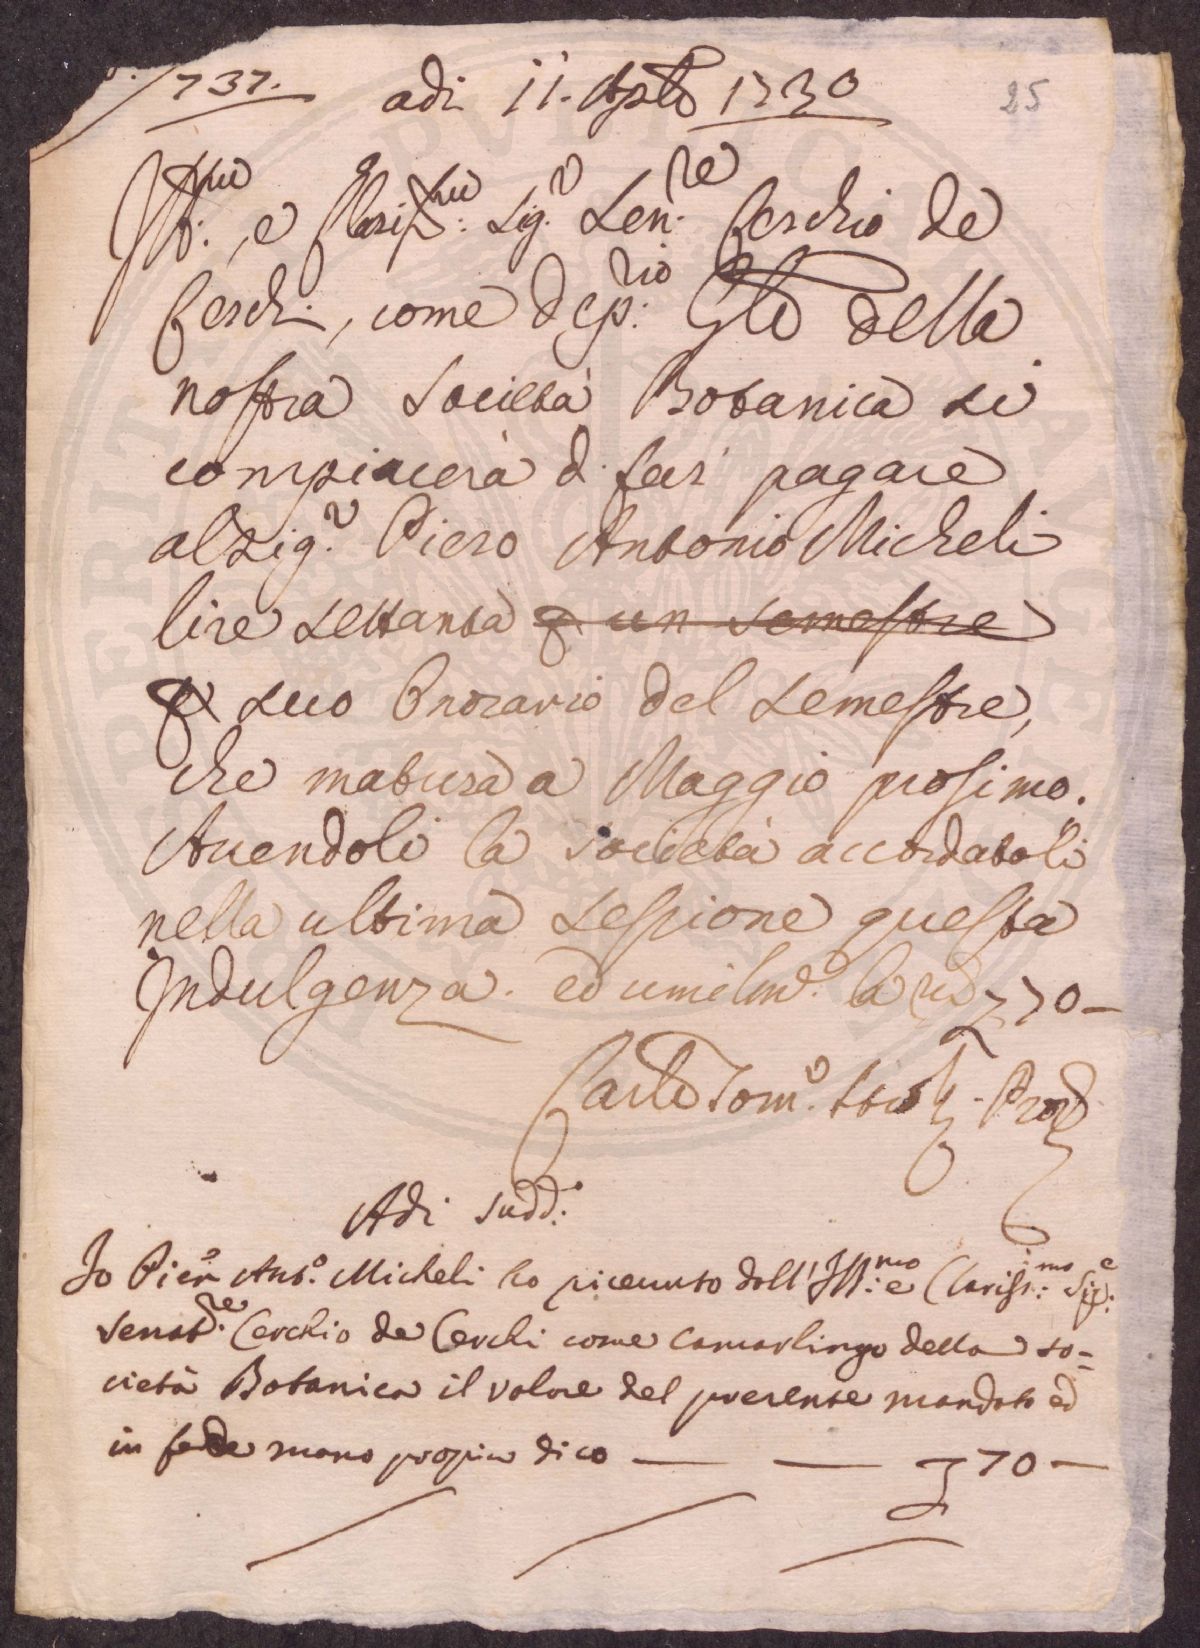 737. adì 11. Aple 1730 25
Ill:mo, e Clariss:mo Sig.r Sen:re Cerchio de
Cerchi, come dep:rio Gle della
nostra Società Botanica si
compiacerà di far pagare
al Sig.r Piero Antonio Micheli
lire settanta p un semestre
p suo Onorario del semestre,
che matura a Maggio prosimo.
Avendoli la società accordatoli
nella ultima Sessione questa
Indulgenza. ed umilm.e la £ 70 -
Carlo Tom.o
Adì sudd:o
Io Pier Ant.o Micheli ho riceuuto dall'Ill:mo e Clariss:imo Sig:e
Senat:re Cerchio de Cerchi come camarlingo della so=
cietà Botanica il valore del presente mandato ed
in fede mano propria dico — — £ 70 —